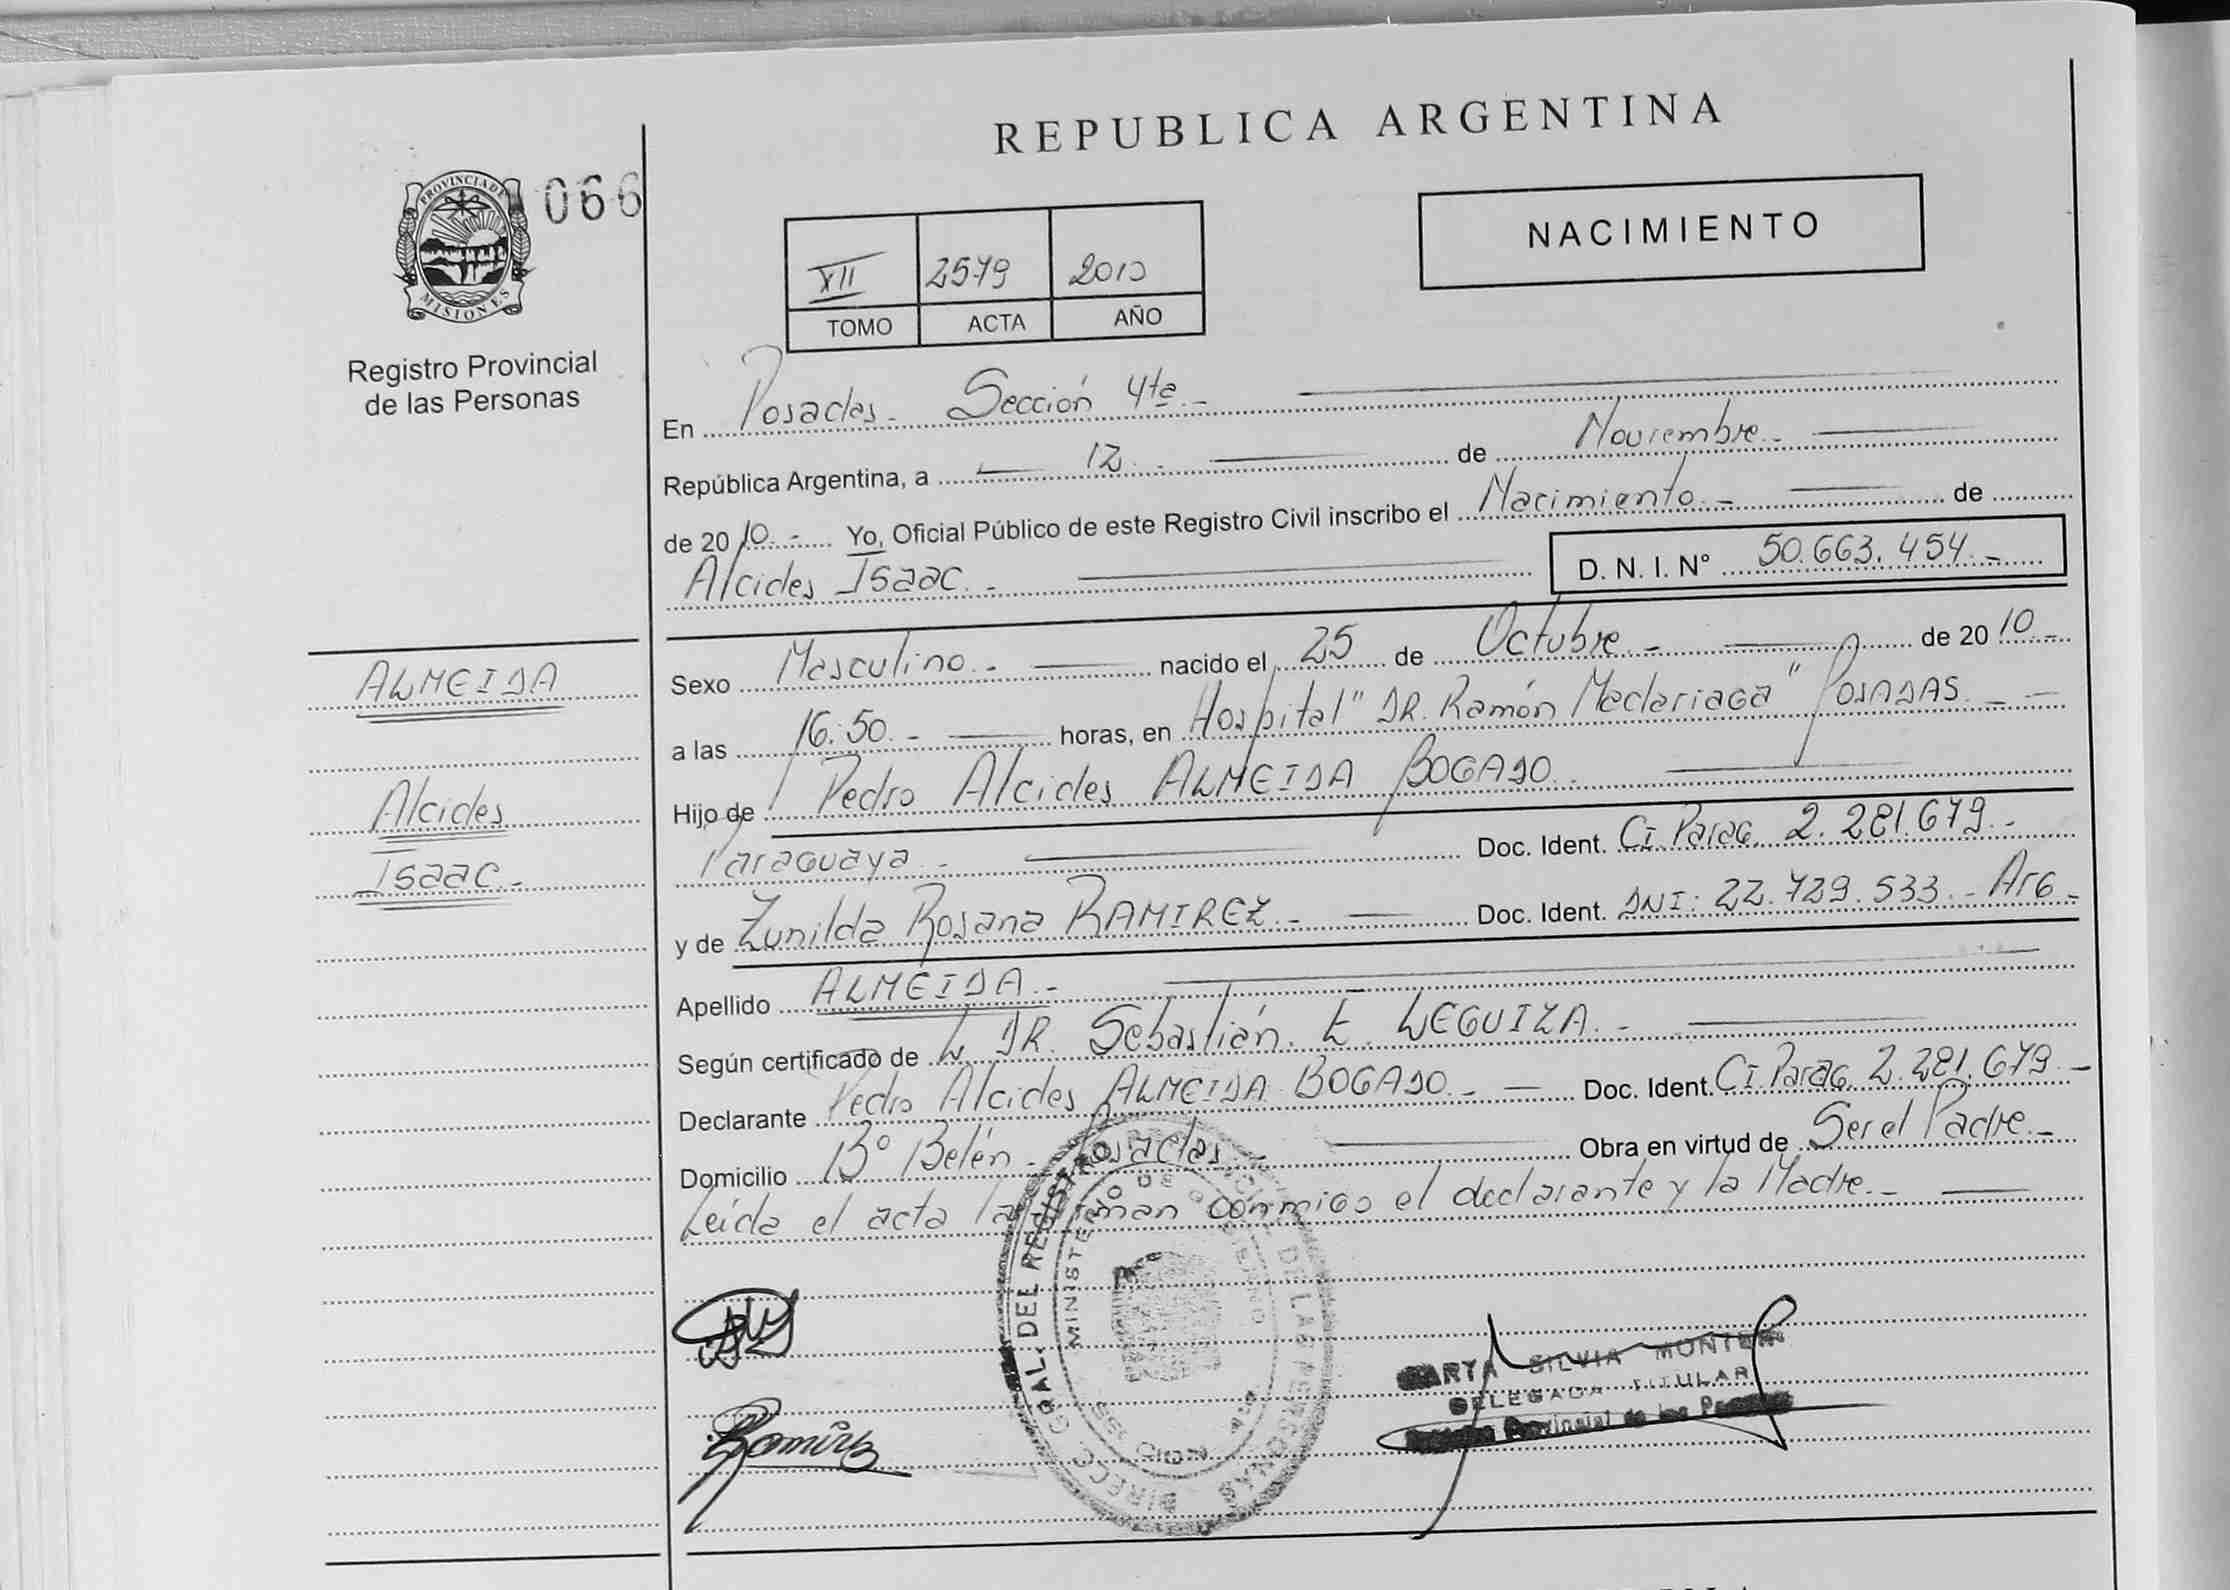 REPUBLICA ARGENTINA
PROVINCIA DE
MISIONES
066
Registro Provincial
de las Personas
XII 2579 2010
TOMO ACTA AÑO
NACIMIENTO
En Posadas - Sección 4ta -
República Argentina, a 12 - de Noviembre -
de 2010 - Yo, Oficial Público de este Registro Civil inscribo el Nacimiento - de
Alcides Isaac - D. N. I. N° 50.663.454 -
ALMEIDA
Alcides
Isaac -
Sexo Masculino - nacido el 25 de Octubre - de 2010 -
a las 16:50 - horas, en Hospital "DR. Ramón Madariaga" POSADAS -
Hijo de Pedro Alcides ALMEIDA BOGADO -
Paraguaya - Doc. Ident. CI. Parag. 2.281.679 -
y de Zunilda Rosana RAMIREZ - Doc. Ident. DNI: 22.729.533 - Arg -
Apellido ALMEIDA -
Según certificado de DR. Sebastián. E. LEGUIZA -
Declarante Pedro Alcides ALMEIDA BOGADO - Doc. Ident. CI. Parag. 2.281.679 -
Domicilio B° Belén - Posadas - Obra en virtud de Ser el Padre -
Leida el acta la firman conmigo el declarante y la Madre -
DIRECC. GRAL. DEL REGISTRO DE LAS PERSONAS
MINISTERIO DE GOBIERNO
MISIONES
Ramirez
SILVIA MONTE
DELEGADA TITULAR
Provincial de las